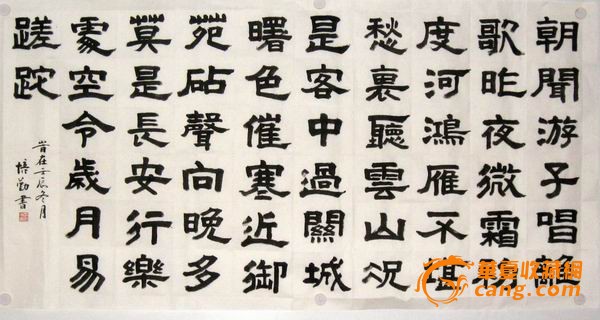 朝聞游子唱離
歌昨夜微霜初
度河鴻雁不堪
愁裏聽雲山況
是客中過關城
曙色催寒近御
苑砧聲向晚多
莫是長安行樂
處空令歲月易
蹉跎
岁在壬辰冬月
培勤書
華夏收藏網
cang.com